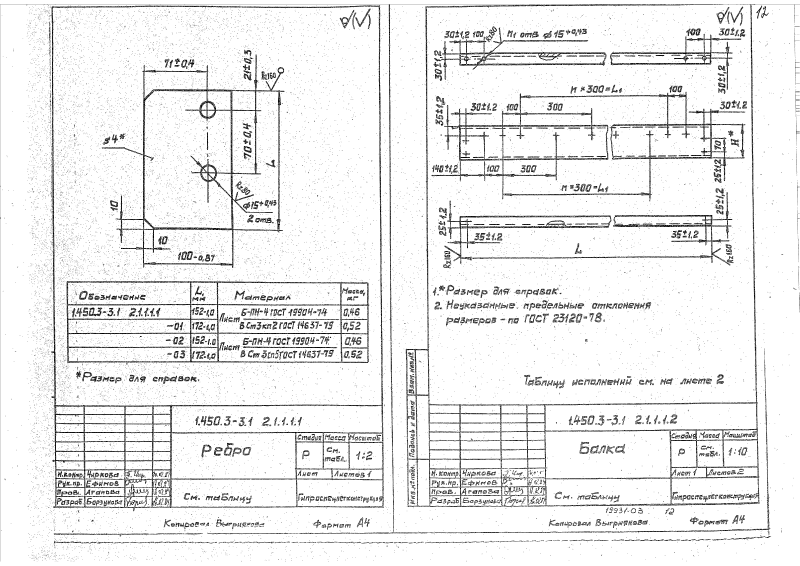 12
71±0,4
21±0,3
Rz160
s4*
70±0,4
L
Rz80
ф15+0,43
2 отв.
10
10
100-0,87
Обозначение
L, мм
Материал
Масса, кг
1.450.3-3.1 2.1.1.1.1
152-1,0
Лист
Б-ПН-4 ГОСТ 19904-74
0,46
-01
172-1,0
В Ст3кп2 ГОСТ 14637-79
0,52
-02
152-1,0
Лист
Б-ПН-4 ГОСТ 19904-74
0,46
-03
172-1,0
В Ст3сп5 ГОСТ 14637-79
0,52
*Размер для справок.
1.450.3-3.1 2.1.1.1.1
Ребро
Стадия Масса Масштаб
Р
см. табл.
1:2
Лист
Листов 1
Н.контр. Чиркова
Рук.пр. Ефимов
Пров. Агапова
Разраб. Борзунова
См. таблицу
Гипроспецлегконструкция
Копировал Выгриянова
Формат А4
30±1,2
100
Rz80
n1 отв. ф15+0,43
100
30±1,2
30±1,2
30±1,2
n × 300=L1
100
35±1,2
30±1,2
100
300
30±1,2
H*
70
25±1,2
140±1,2
100
300
n×300=L1
25±1,2
25±1,2
35±1,2
35±1,2
Rz160
L
Rz160
1.*Размер для справок.
2. Неуказанные предельные отклонения
размеров - по ГОСТ 23120-78.
Таблицу исполнений см. на листе 2
Взам.инв.№
Подпись и дата
Инв.№ подл.
1.450.3-3.1 2.1.1.1.2
Балка
Стадия Масса Масштаб
Р
см. табл.
1:10
Лист 1
Листов 2
Н.контр. Чиркова
Рук.пр. Ефимов
Пров. Агапова
Разраб. Борзунова
См. таблицу
Гипроспецлегконструкция
19931-03 12
Копировал Выгриянова
Формат А4